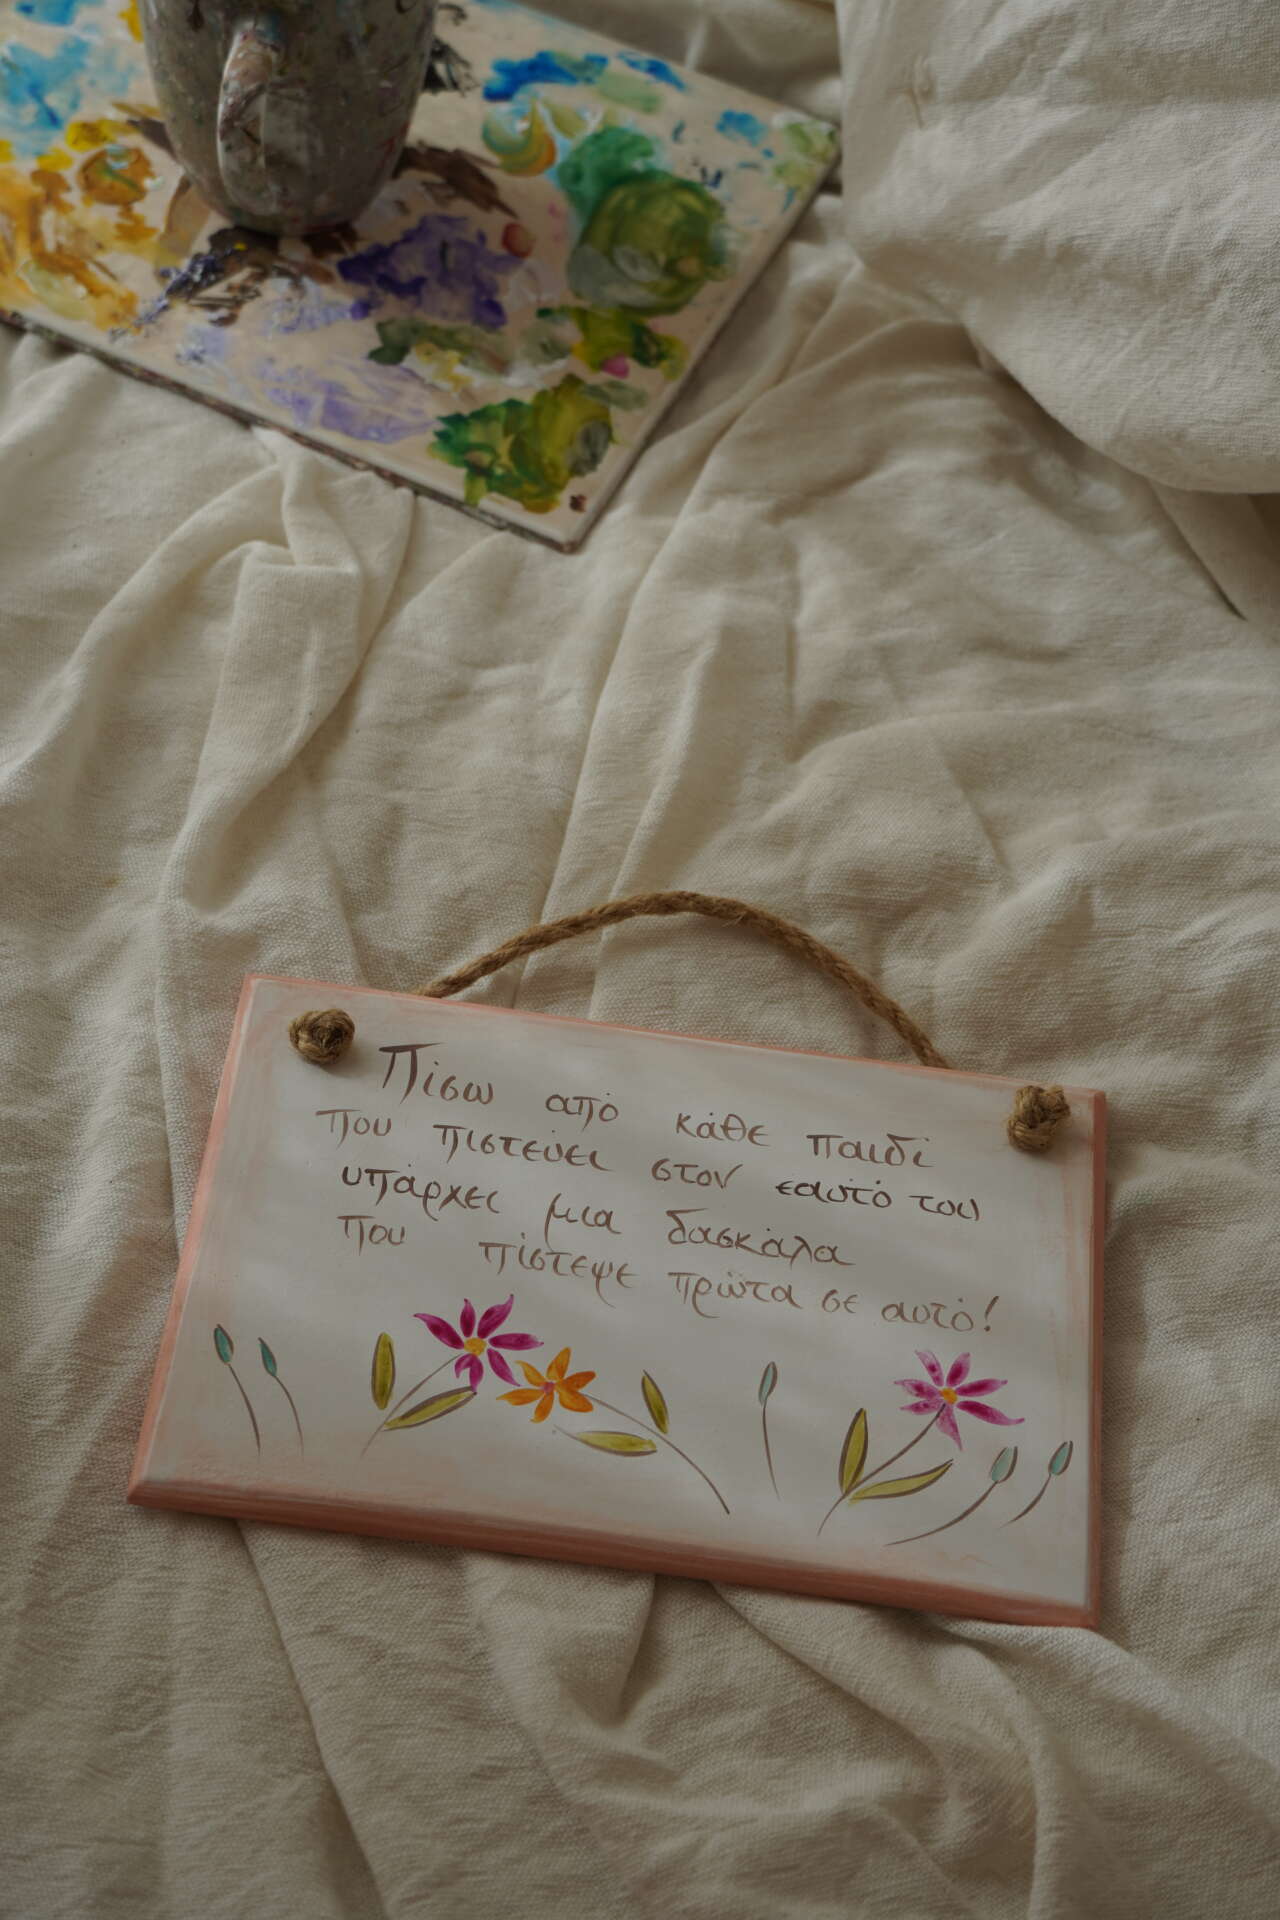 Πίσω από κάθε παιδί
που πιστεύει στον εαυτό του
υπάρχει μια δασκάλα
που πίστεψε πρώτα σε αυτό!